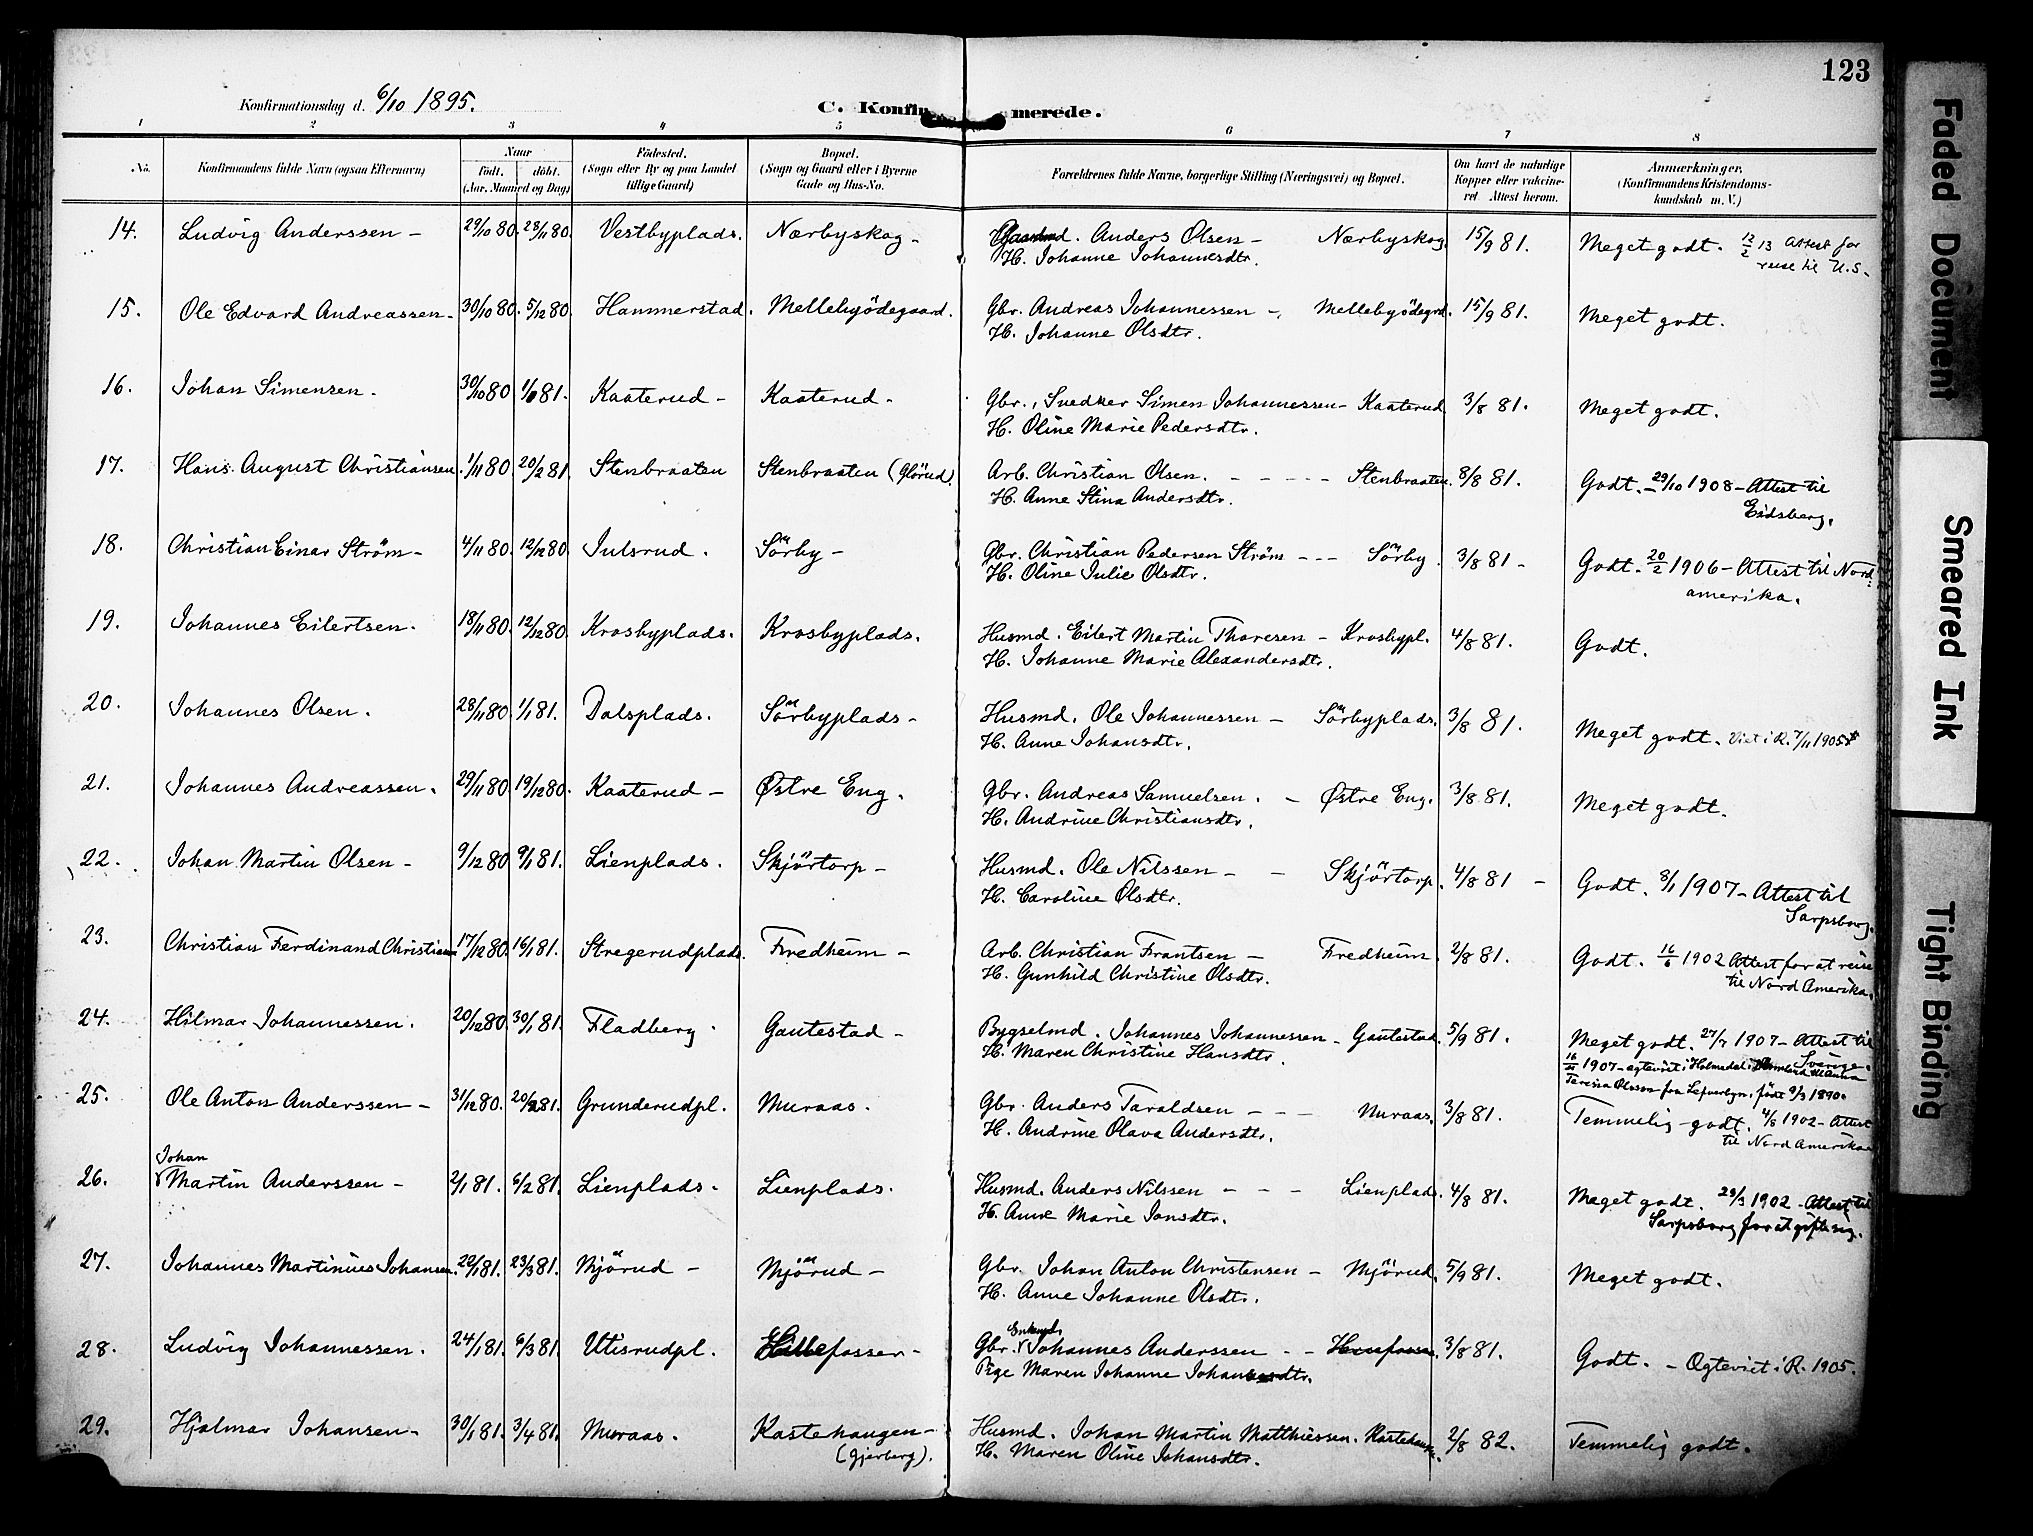 123
Konfirmationsdag d. 6/10 1895.
C. Konfir merede.
1 2 3 4 5 6 7 8
No. Konfirmandens fulde Navn (ogsaa Efternavn) Naar Födt. döbt. (Aar, Maaned og Dag) Födested. (Sogn eller By og paa Landet tillige Gaard) Bopæl. (Sogn og Gaard eller i Byerne Gade og Hus-No. Forældrenes fulde Navne, borgerlige Stilling (Næringsvei) og Bopæl. Om havt de naturlige Kopper eller vakcineret Attest herom. Anmærkninger. (Konfirmandens Kristendomskundskab m. V.)
14. Ludvig Anderssen – 29/10 80. 28/11 80. Vestbyplads. Nærbyskog – Gaardmd. Anders Olsen – Nærbyskog. 15/9 81. Meget godt. 12/2 13 Attest for
H. Johanne Johannesdtr. reise til U.S.
15. Ole Edvard Andreassen – 30/10 80. 5/12 80. Hammerstad. Mellebyödegaard. Gbr. Andreas Johannessen – Mellebyödegrd. 15/9 81. Meget godt.
H. Johanne Olsdtr.
16. Johan Simensen. 30/10 80 1/6 81. Kaaterud – Kaaterud – Gbr., Snedker Simen Johannessen – Kaaterud 3/8 81. Meget godt.
H. Oline Marie Pedersdtr.
17. Hans August Christiansen. 1/11 80 20/2 81 Stenbraaten Stenbraaten (Glörud). Arb. Christian Olsen. – – – – – Stenbraaten. 8/8 81. Godt. – 29/10 1908 – Attest til
H. Anne Stina Andersdtr. Eidsberg.
18. Christian Einar Ström – 4/11 80. 12/12 80. Julsrud. Sörby – Gbr. Christian Pedersen Ström – – – Sörby. 3/8 81 – Godt. 20/2 1906 – Attest til Nord-
H. Oline Julie Olsdtr. amerika.
19. Johannes Eilertsen. 18/11 80. 12/12 80. Krosbyplads. Krosbyplads. Husmd. Eilert Martin Thoresen – Krosbypl. 4/8 81. Godt.
H. Johanne Marie Alexandersdtr.
20. Johannes Olsen. 28/11 80. 1/1 81. Dalsplads. Sörbyplads – Husmd. Ole Johannessen – Sörbyplads. 3/8 81. Meget godt. Viet i R. 7/11 1905
H. Anne Johansdtr.
21. Johannes Andreassen. 29/11 80. 19/12 80. Kaaterud – Østre Eng. Gbr. Andreas Samuelsen. – Østre Eng. 3/8 81. Meget godt.
H. Andrine Christiansdtr.
22. Johan Martin Olsen – 9/12 80 9/1 81. Lienplads. Skjörtorp – Husmd. Ole Nilssen – – Skjörtorp. 4/8 81 – Godt. 8/1 1907 – Attest til
H. Caroline Olsdtr. Sarpsborg.
23. Christian Ferdinand Christians 17/12 80. 16/1 81. Stregerudplads. Fredheim – Arb. Christian Frantsen – Fredheim. 2/8 81. Godt. 16/6 1902 Attest for at reise
H. Gunhild Christine Olsdtr. til Nord Amerika.
24. Hilmar Johannessen. 20/12 80. 30/1 81. Fladberg. Gautestad – Bygselmd. Johannes Johannessen – Gautestad. 5/9 81. Meget godt. 27/7 1907 – Attest til
H. Maren Christine Hansdtr. Sverige.
1907 – ægteviet i Holmedal
Teresia Olsson fra født 9/3 1890.
25. Ole Anton Anderssen – 31/12 80. 20/2 81. Grunderudpl. Muraas. Gbr. Anders Taraldsen – – – Muraas. 3/8 81. Temmelig godt. 4/8 1902 – Attest
H. Andrine Olava Andersdtr. til Nord Amerika
Johan
26. Martin Anderssen – 2/1 81. 6/2 81. Lienplads. Lienplads. Husmd. Anders Nilssen – – – Lienplads. 4/8 81. Meget godt. 29/3 1902 – Attest til
H. Anne Marie Jonsdtr. Sarpsborg for at gifte sig.
27. Johannes Martinius Johansen. 22/1 81. 23/3 81. Mjörud – Mjörud – Gbr. Johan Anton Christensen – Mjörud. 5/9 81. Meget godt.
H. Anne Johanne Olsdtr.
Enkemd.
28. Ludvig Johannessen. 24/1 81. 6/3 81. Utisrudpl. Gbr. Johannes Anderssen – – 3/8 81. Godt. – Ægteviet i R. 1905.
Pige Maren Johanne
29. Hjalmar Johansen – 30/1 81. 3/4 81. Muraas. Kastehaugen – Husmd. Johan Martin Matthiessen. 2/8 82. Temmelig godt.
(Gjerberg). H. Maren Oline Johansdtr.
Faded Document
Smeared Ink
Tight Binding